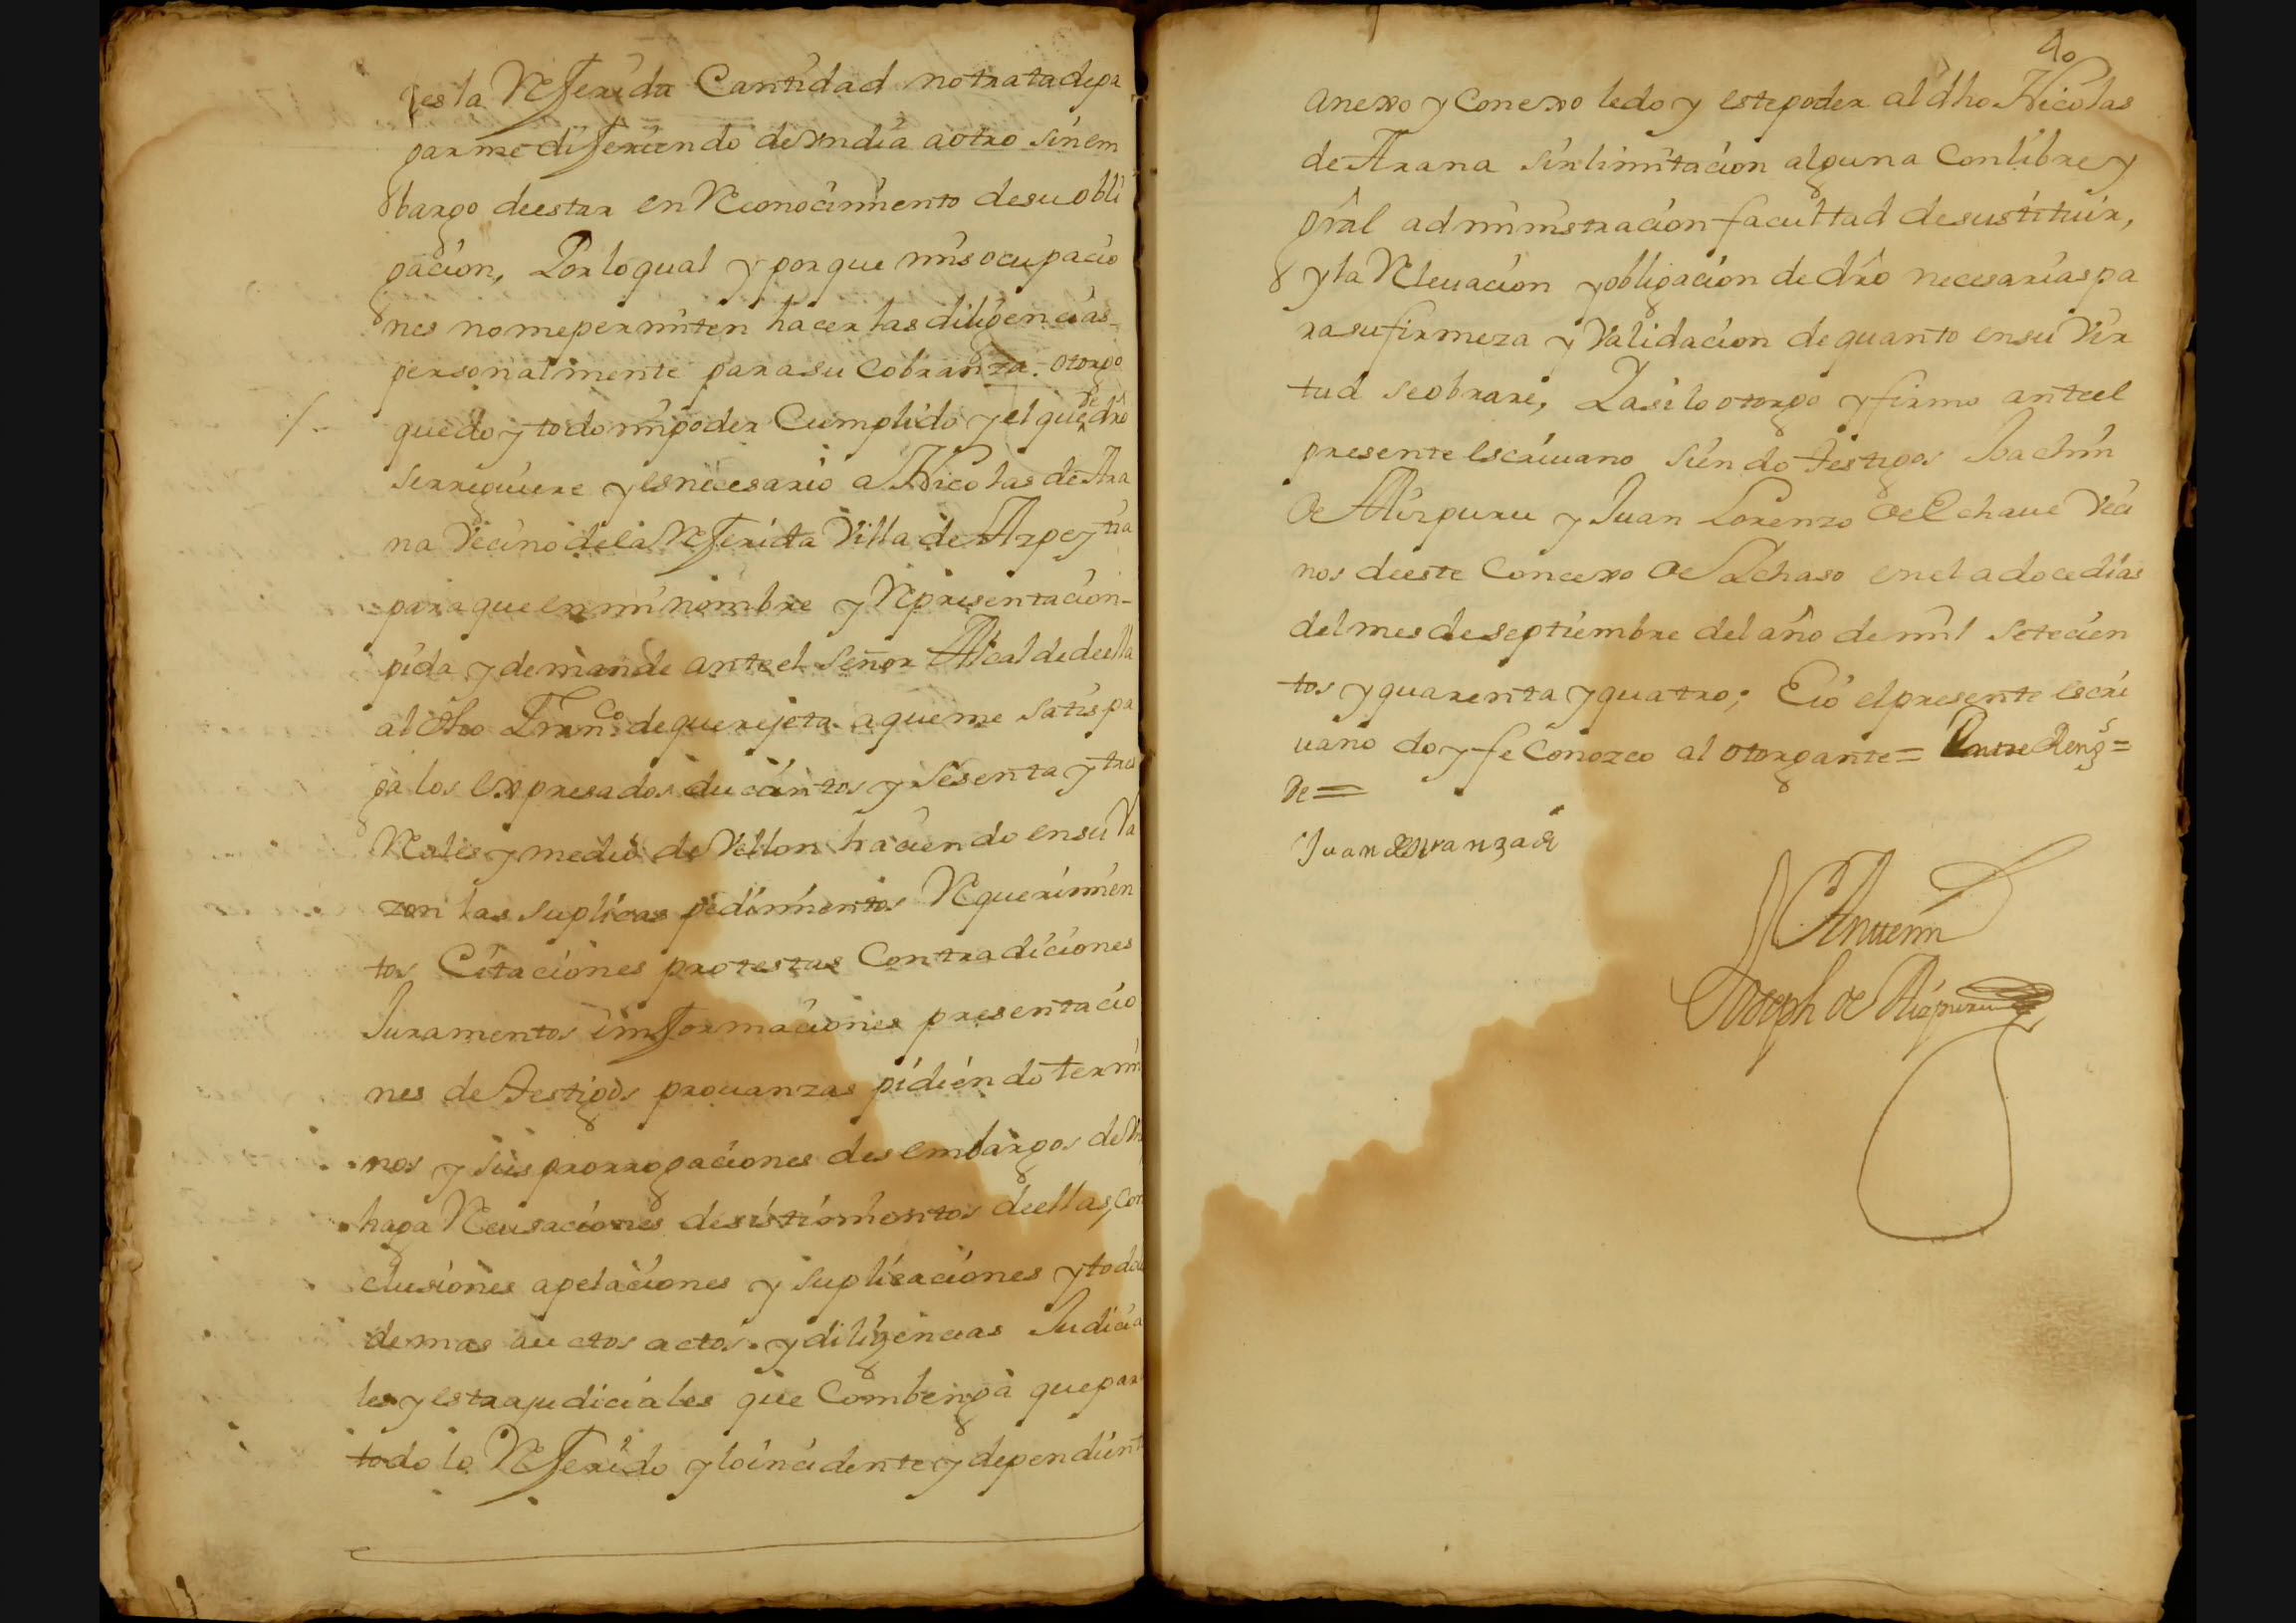 es la Referida Cantidad no trata de pa
garme difiriendo de Vn dia a otro sin em
bargo de estar en Reconocimiento de su obli
gacion, Por lo qual y porque mis ocupacio
nes no me permiten hacer las diligencias
personalmente para su Cobranza. otorgo
que doy todo mi poder Cumplido y el que de dro
se rrequiere y es necesario a Nicolas de Ara
na Vecino de la Referida Villa de Azpeytia
para que en mi nombre y Representacion
pida y demande ante el Señor Alcalde de ella
al dho Franco de querejeta a que me satisfa
ga los expresados ducientos y sesenta y tres
Reales y medio de Vellon haciendo en su Ra
zon las suplicas pedimientos Requerimien
tos Citaciones protestas Contradiciones
Juramentos imformaciones presentacio
nes de testigos prouanzas pidiendo termi
nos y sus prorrogaciones desembargos de
haga Recusaciones desistimientos de ellas, Con
clusiones apelaciones y suplicaciones y todos
demas auctos actos y diligencias Judicia
les y estrajudiciales que Combenga que para
todo lo Referido y lo incidente y dependiente
40
anexo y conexo le doy este poder al dho Nicolas
de Arana sin limitacion alguna Con libre y
gral administracion facultad de sustituir,
y la Releuacion y obligacion de dro necesarias pa
ra su firmeza y Validacion de quanto en su Vir
tud se obrare, Y asi lo otorgo y firmo ante el
presente escriuano siendo testigos Joachin
de Aizpuru y Juan Lorenzo de Echaue Veci
nos de este Concexo de Ichaso en el a doce dias
del mes de septiembre del año de mil setecien
tos y quarenta y quatro; E io el presente escri
uano doy fe Conozco al otorgante = Entre Reng.s =
de =
Antemi
Joseph de Aizpuru